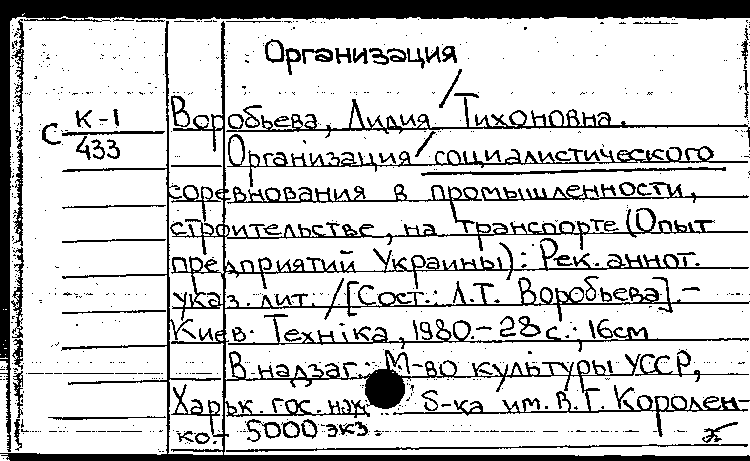 Организация
Воробьева, Лидия Тихоновна.
С К-1
433
Организация социалистического
соревнования в промышленности,
строительстве, на транспорте (Опыт
предприятий Украины): Рек. аннот.
указ. лит. / [Сост.: Л.Т. Воробьева]. -
Киев: Технiка, 1980. - 28 с.; 16см
В надзаг.: М-во культуры УССР,
Харьк. гос. науч. б-ка им. В.Г. Королен-
ко. - 5000 экз.